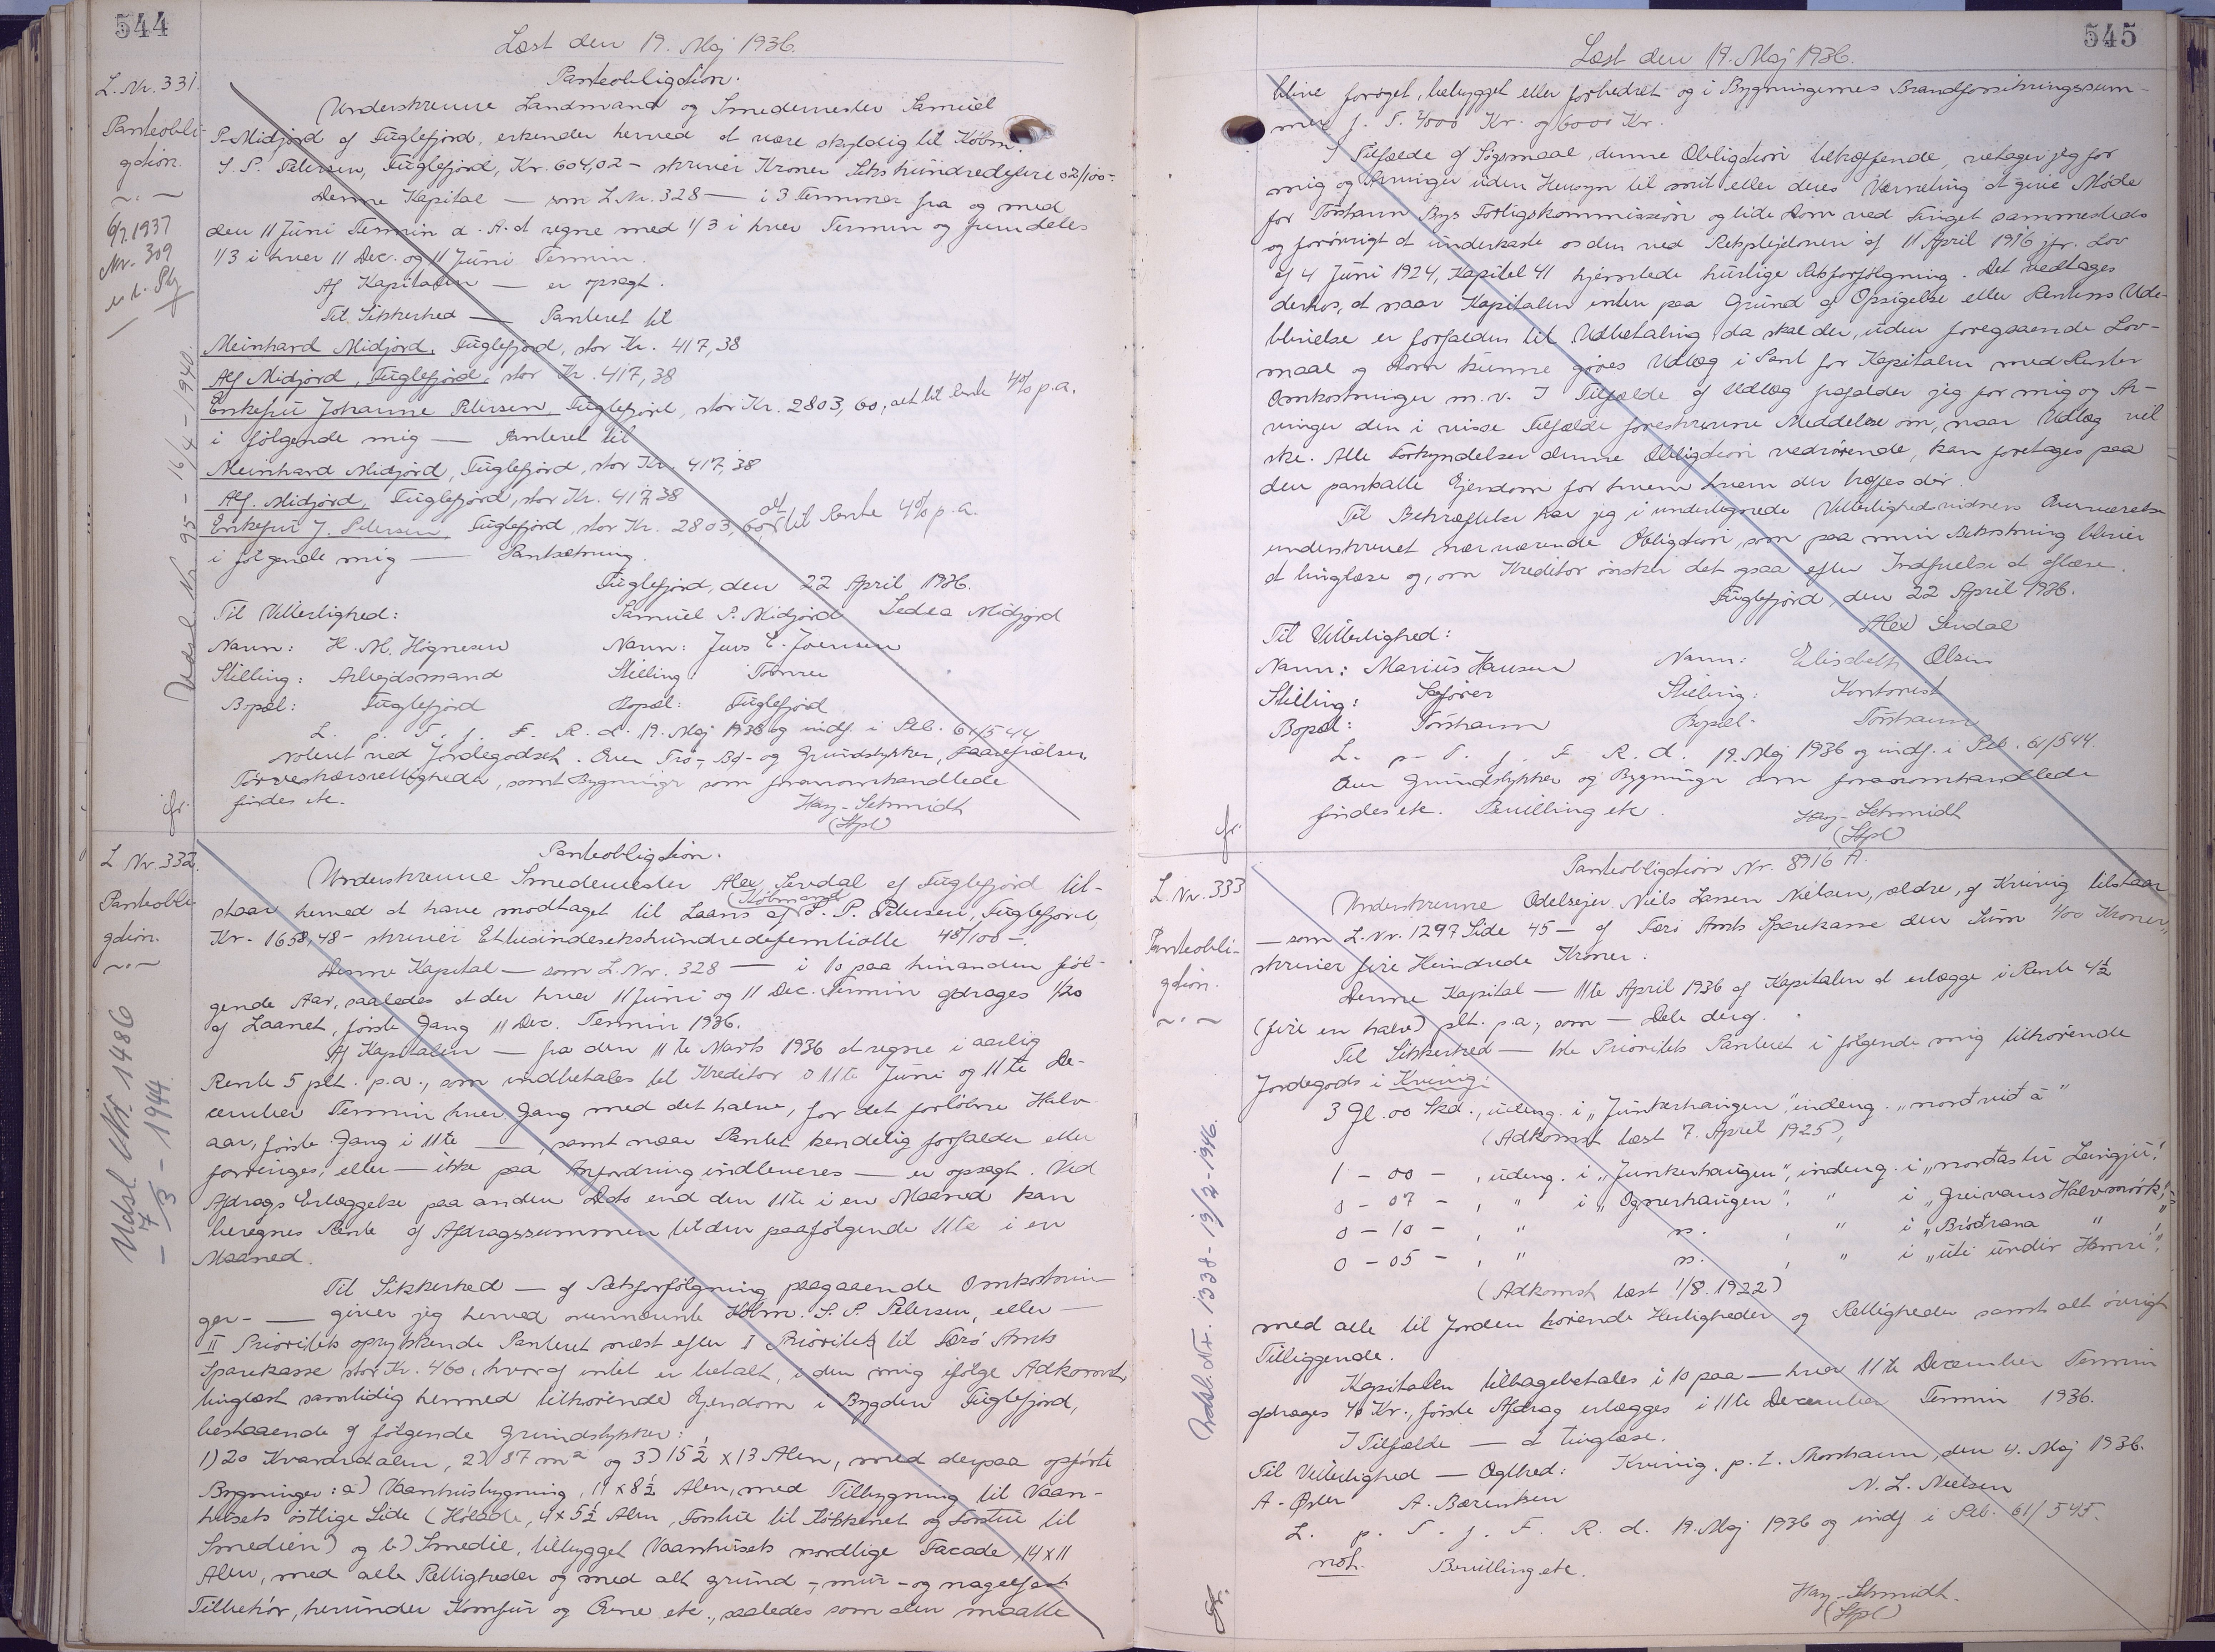 544
Læst den 19. Maj 1936.
L. Nr. 331.
Panteobli-
gation.
6/7 1937
Nr. 309
Udsl. Nr. 95 - 16/4 - 1940.
Panteobligation.
Underskrevne Landmand og Smedemester Samuel
P. Midjord af Fuglefjord, erkender herved at være skyldig til Købm.
S. P. Petersen, Fuglefjord, Kr. 604,02 - skriver Kroner Sekshundredefire 02/100 -
Denne Kapital — som L. Nr. 328 — i 3 Terminer fra og med
den 11 Juni Termin d. A. at regne med 1/3 i hver Termin og fremdeles
1/3 i hver 11 Dec. og 11 Juni Termin.
Af Kapitalen — er opsagt.
Til Sikkerhed — Panteret til
Meinhard Midjord, Fuglefjord, stor Kr. 417,38
Alf Midjord, Fuglefjord, stor Kr. 417,38
Enkefru Johanne Petersen, Fuglefjord, stor Kr. 2803,60, alt til Rente 4% p.a.
i følgende mig — Panteret til
Meinhard Midjord, Fuglefjord, stor Kr. 417,38
Alf. Midjord, Fuglefjord, stor Kr. 417,38
Enkefru J. Petersen, Fuglefjord, stor Kr. 2803,60 alt til Rente 4% p.a.
i følgende mig — Pantsætning.
Fuglefjord, den 22 April 1936.
Til Vitterlighed: Samuel P. Midjord Sedea Midjord
Navn: H. M. Høgnesen Navn: Jens E. Joensen
Stilling: Arbejdsmand Stilling: Tømrer
Bopæl: Fuglefjord Bopæl: Fuglefjord
L. p. T. f. F. R. d. 19. Maj 1936 og indf. i Ptb. 61/544
Noteret ved Jordegodset. Over Trø-, Bø- og Grundstykker,
Tørveskærsrettigheder, samt Bygninger som foranomhandlede
findes etc. Hay-Schmidt
fr. (Stpl)
L. Nr. 332.
Panteobli-
gation.
Udsl. Nr. 1486
- 7/3 - 1944.
Panteobligation.
Underskrevne Smedemester Alex Sevdal af Fuglefjord til-
staar herved at have modtaget til Laans af (Købmand) S. P. Petersen, Fuglefjord,
Kr. 1658,48 - skriver Ettusindesekshundredefemtiotte 48/100 -.
Denne Kapital — som L. Nr. 328 — i 10 paa hinanden føl-
gende Aar, saaledes at der hver 11 Juni og 11 Dec. Termin afdrages 1/20
af Laanet, første Gang 11 Dec. Termin 1936.
Af Kapitalen — fra den 11te Marts 1936 at regne i aarlig
Rente 5 pCt. p.a., som indbetales til Kreditor i 11te Juni og 11te De-
cember Termin hver Gang med det halve, for det forløbne Halv-
aar, første Gang i 11te —, samt naar Pantet kendelig forfalder eller
forringes, eller — ikke paa Anfordring indleveres — er opsagt. Ved
Afdrags Erlæggelse paa anden Dato end den 11te i en Maaned kan
beregnes Rente af Afdragssummen til den paafølgende 11te i en
Maaned.
Til Sikkerhed — af Retsforfølgning paagaaende Omkostnin-
ger - — giver jeg herved ovennævnte Købm. S. P. Petersen, eller —
II Prioritets oprykkende Panteret næst efter I Prioritet til Færø Amts
Sparekasse stor Kr. 460, hvoraf intet er betalt, i den mig ifølge Adkomst,
tinglæst samtidig hermed tilhørende Ejendom i Bygden Fuglefjord,
bestaaende af følgende Grundstykker:
1) 20 Kvadratalen, 2) 87 m² og 3) 15½ x 13 Alen, med derpaa opførte
Bygninger: a) Vaanhusbygning, 11 x 8½ Alen, med Tilbygning til Vaan-
husets østlige Side (Hølade, 4 x 5½ Alen, Forstue til Køkkenet og Forstue til
Smedien) og b) Smedie, tilbygget Vaanhusets nordlige Facade, 14 x 11
Alen, med alle Rettigheder og med alt grund-, mur- og nagelfast
Tilbehør, herunder Komfur og Ovne etc., saaledes som den maatte
545
Læst den 19. Maj 1936.
blive forøget, bebygget eller forbedret og i Bygningernes Brandforsikringssum-
mer f. T. 4000 Kr. og 6000 Kr.
I Tilfælde af Søgsmaal, denne Obligation betræffende, vedtager jeg for
mig og Arvinger uden Hensyn til mit eller deres Værneting at give Møde
for Torshavn Bys Forligskommission og lide Dom ved Tinget sammesteds
og forøvrigt at underkaste os den ved Retsplejeloven af 11 April 1916 jfr. Lov
af 4 Juni 1924, Kapitel 41 hjemlede hurtige Retsforfølgning. Det vedtages
derhos, at naar Kapitalen enten paa Grund af Opsigelse eller Rentens Ude-
blivelse er forfalden til Udbetaling da skal der, uden foregaaende Lov-
maal og Dom kunne gøres Udlæg i Pant for Kapitalen med Renter
Omkostninger m.v. I Tilfælde af Udlæg frafalder jeg for mig og Ar-
vinger den i visse Tilfælde foreskrevne Meddelelse om, naar Udlæg vil
ske. Alle Forkyndelser denne Obligation vedrørende, kan foretages paa
den pantsatte Ejendom for hvem der træffes der.
Til Bekræftelse har jeg i undertegnede Vitterlighedsvidners Overværelse
underskrevet nærværende Obligation, som paa min Bekostning bliver
at tinglæse og, om Kreditor ønsker det ogsaa efter Indfrielse at aflæse.
Fuglefjord, den 22 April 1936.
Til Vitterlighed: Alex Sevdal
Navn: Marius Hansen Navn: Elisabeth Olsen
Stilling: Sagfører Stilling: Kontorist
Bopæl: Torshavn Bopæl: Torshavn
L. p. T. f. F. R. d. 19. Maj 1936 og indf. i Ptb. 61/544.
Over Grundstykker og Bygninger som foranomhandlede
findes etc. Bevilling etc. Hay-Schmidt
fr. (Stpl)
L. Nr. 333
Panteobli-
gation.
Udsl. Nr. 1338 - 13/2 - 1946.
Panteobligation Nr. 8916 A.
Underskrevne Odelsejer Niels Larsen Nielsen, ældre, af Kvivig tilstaar
— som L. Nr. 1297 Side 45 — af Færø Amts Sparekasse den Sum 400 Kroner,
skriver fire Hundrede Kroner.
Denne Kapital — 11te April 1936 af Kapitalen at erlægge i Rente 4½
(fire en halv) pCt. p.a., som — Dele deraf.
Til Sikkerhed — 1ste Prioritets Panteret i følgende mig tilhørende
Jordegods i Kvivig:
3 Gl. 00 Skd., udeng. i „Junkerhaugen", indeng. „norðvið á"
(Adkomst læst 7. April 1925),
1 - 00 - , udeng. i „Junkerhaugen", indeng. i „norðastu Leingju",
0 - 07 - , " i „Ognerhaugen", " i „Greivans Halvmørk",
0 - 10 - , " m. , " i „Brøðrana "
0 - 05 - , " m. , " i „úti undir Hamri",
(Adkomst læst 1/8. 1922)
med alle til Jorden hørende Herligheder og Rettigheder samt alt øvrigt
Tilliggende.
Kapitalen tilbagebetales i 10 paa — hver 11te December Termin
afdrages 40 Kr., første Afdrag erlægges i 11te December Termin 1936.
I Tilfælde — at tinglæse.
Til Vitterlighed — Ægthed: Kvivig, p. t. Thorshavn, den 4. Maj 1936.
A. A. Bærentsen N. L. Nielsen
L. p. T. f. F. R. d. 19. Maj 1936 og indf i Ptb. 61/545.
not. Bevilling etc.
Hay-Schmidt.
fr. (Stpl)